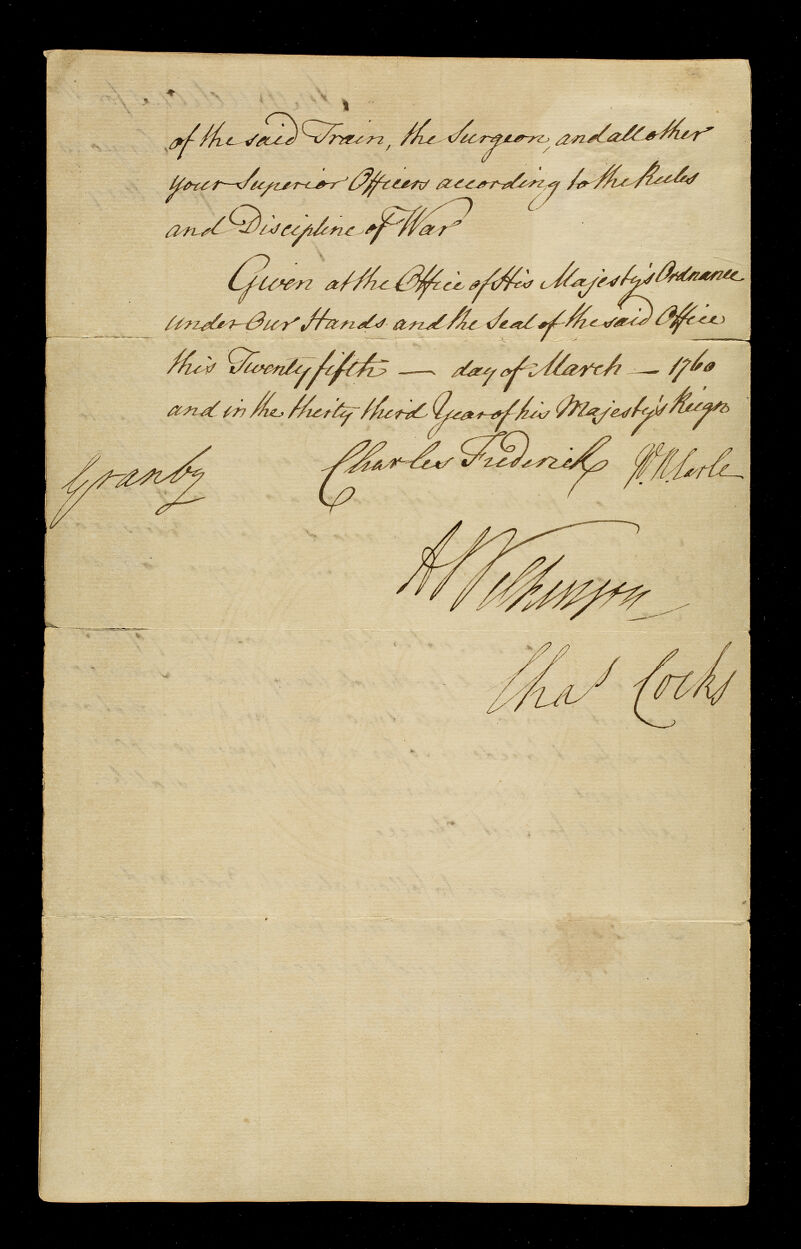 of the said Train, the Surgeon, and all other
your Superior Officers according to the Rules
and Discipline of War
Given at the Office of His Majesty's Ordnance
under Our Hands and the Seal of the said Office
this Twenty fifth — day of March — 1760
and in the thirty third Year of his Majesty's Reign
Granby Charles Frederick W. R. Earle
A Wilkinson
Chas Cocks